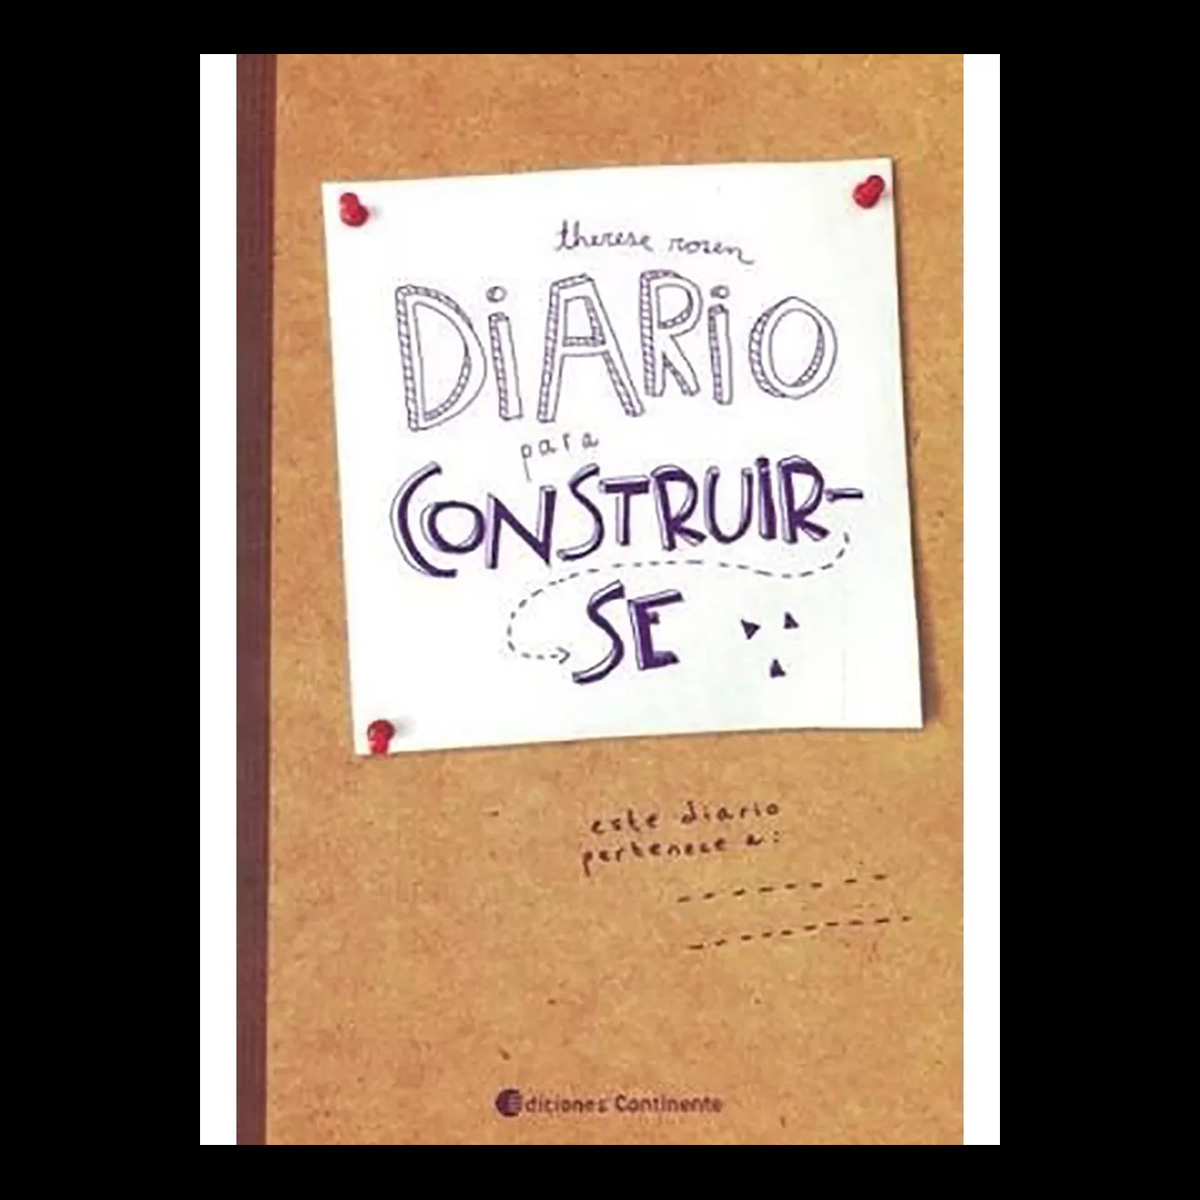 therese rosen
DiARiO
para
CONSTRUIR-
SE
este diario
pertenece a:
Ediciones Continente